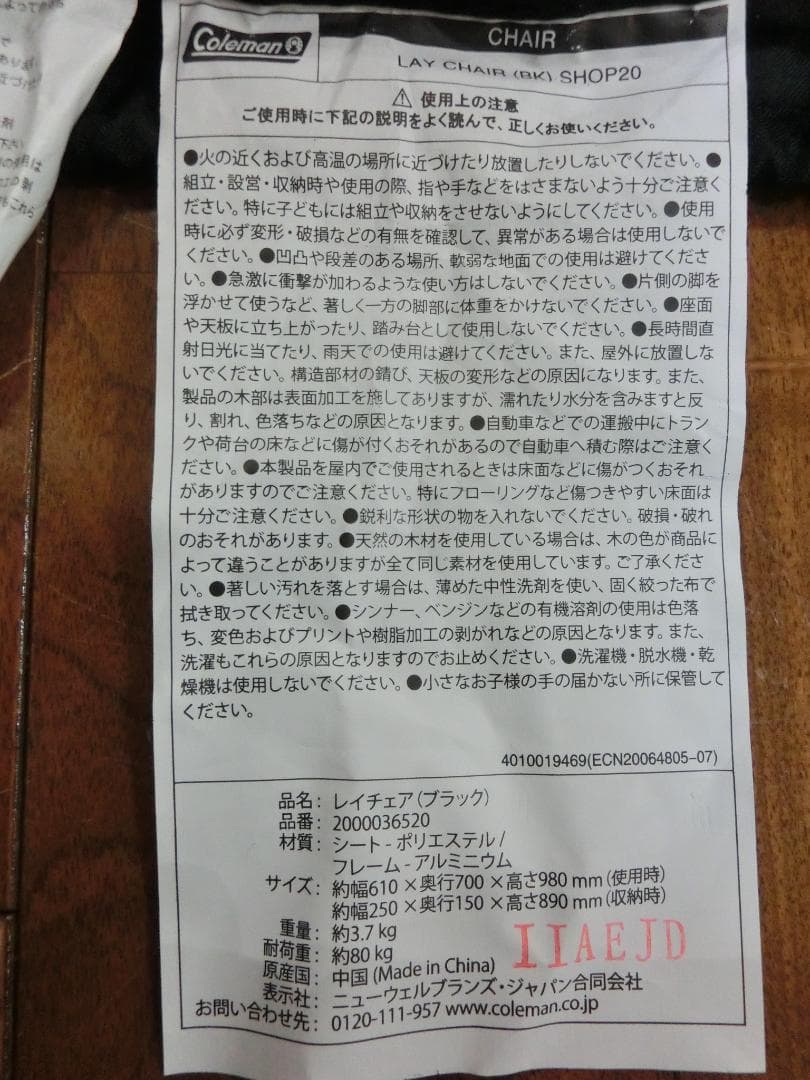 Coleman
CHAIR
LAY CHAIR (BK) SHOP20
⚠ 使用上の注意
ご使用時に下記の説明をよく読んで、正しくお使いください。
●火の近くおよび高温の場所に近づけたり放置したりしないでください。●
組立・設営・収納時や使用の際、指や手などをはさまないよう十分ご注意く
ださい。特に子どもには組立や収納をさせないようにしてください。●使用
時に必ず変形・破損などの有無を確認して、異常がある場合は使用しないで
ください。●凹凸や段差のある場所、軟弱な地面での使用は避けてくださ
い。●急激に衝撃が加わるような使い方はしないでください。●片側の脚を
浮かせて使うなど、著しく一方の脚部に体重をかけないでください。●座面
や天板に立ち上がったり、踏み台として使用しないでください。●長時間直
射日光に当てたり、雨天での使用は避けてください。また、屋外に放置しな
いでください。構造部材の錆び、天板の変形などの原因になります。また、
製品の木部は表面加工を施してありますが、濡れたり水分を含みますと反
り、割れ、色落ちなどの原因となります。●自動車などでの運搬中にトラン
クや荷台の床などに傷が付くおそれがあるので自動車へ積む際はご注意く
ださい。●本製品を屋内でご使用されるときは床面などに傷がつくおそれ
がありますのでご注意ください。特にフローリングなど傷つきやすい床面は
十分ご注意ください。●鋭利な形状の物を入れないでください。破損・破れ
のおそれがあります。●天然の木材を使用している場合は、木の色が商品に
よって違うことがありますが全て同じ素材を使用しています。ご了承くださ
い。●著しい汚れを落とす場合は、薄めた中性洗剤を使い、固く絞った布で
拭き取ってください。●シンナー、ベンジンなどの有機溶剤の使用は色落
ち、変色およびプリントや樹脂加工の剥がれなどの原因となります。また、
洗濯もこれらの原因となりますのでお止めください。●洗濯機・脱水機・乾
燥機は使用しないでください。●小さなお子様の手の届かない所に保管して
ください。
4010019469(ECN20064805-07)
品名: レイチェア(ブラック)
品番: 2000036520
材質: シート - ポリエステル /
フレーム - アルミニウム
サイズ: 約幅610 × 奥行700 × 高さ980 mm (使用時)
約幅250 × 奥行150 × 高さ890 mm (収納時)
重量: 約3.7 kg
耐荷重: 約80 kg
原産国: 中国 (Made in China)
IIAEJD
表示社: ニューウェルブランズ・ジャパン合同会社
お問い合わせ先: 0120-111-957 www.coleman.co.jp